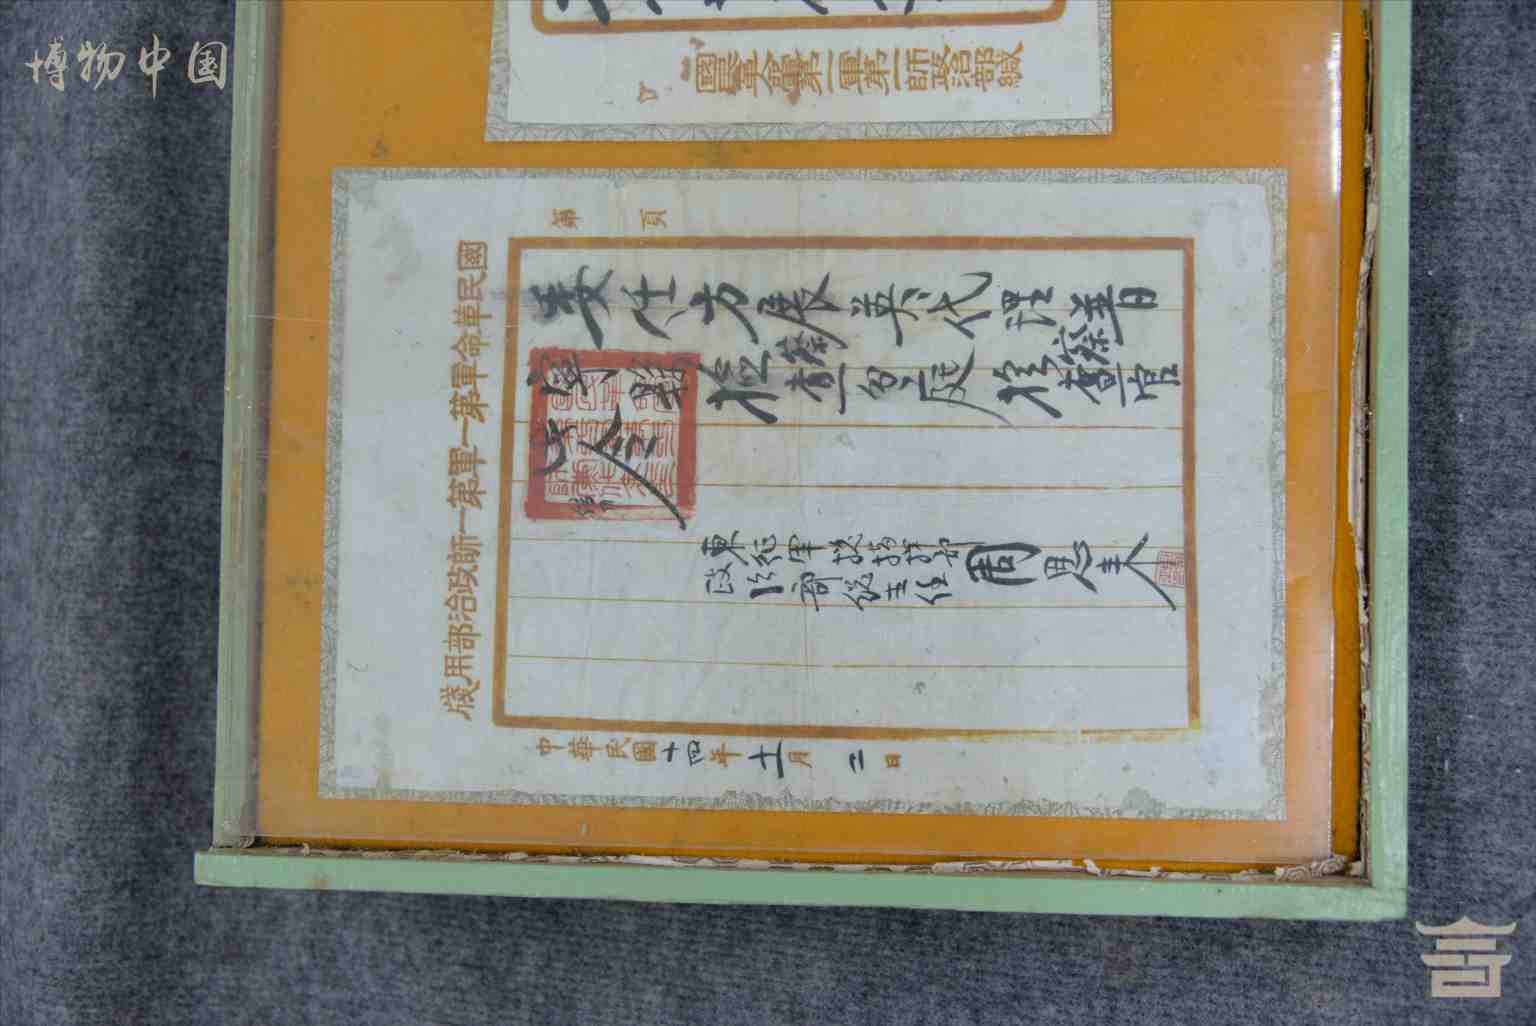 博物中国
國民革命軍第一軍第一師政治部緘
國民革命軍第一軍第一師政治部用箋
第 頁
委任方展英代理普
寧縣檢察分庭檢察官
此令
東征軍總指揮部
政治部總主任 周恩來
中華民國十四年十一月二日